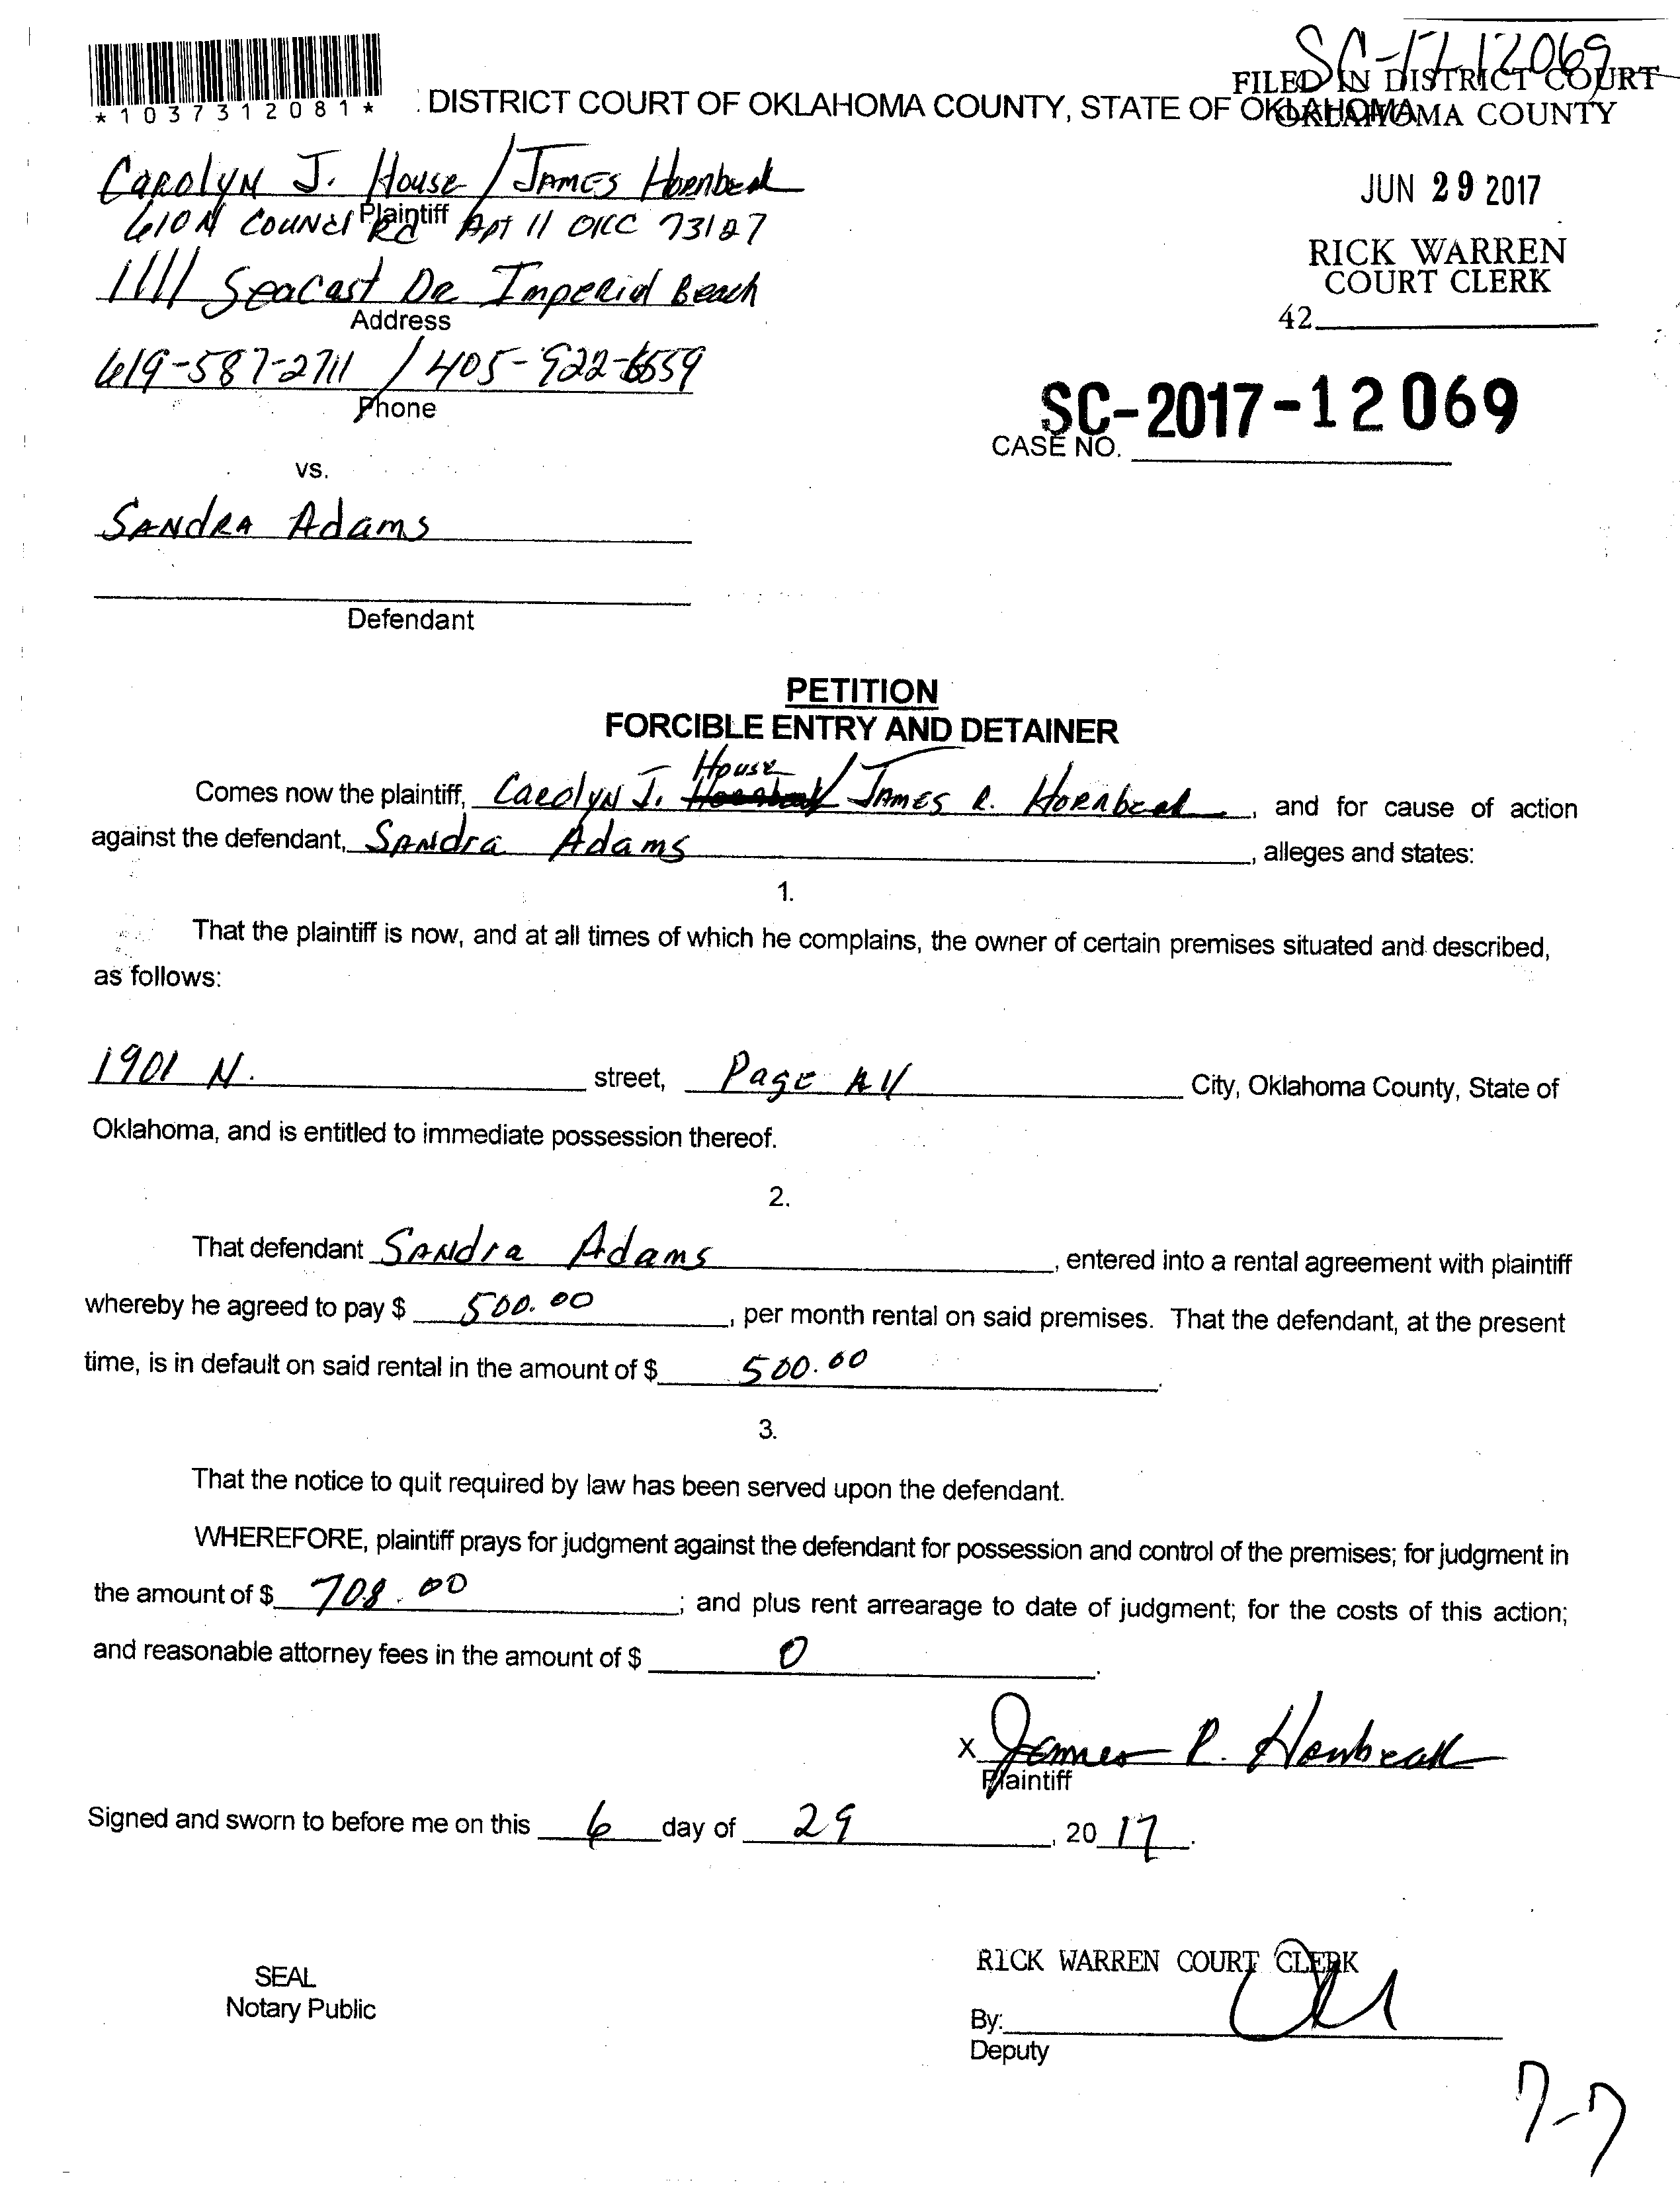 SC-17-12069
FILED IN DISTRICT COURT
OKLAHOMA COUNTY
*1037312081*
DISTRICT COURT OF OKLAHOMA COUNTY, STATE OF OKLAHOMA
JUN 29 2017
RICK WARREN
COURT CLERK
42
Carolyn J. House / James Hornbeak
Plaintiff
610 N Council Rd Apt 11 OKC 73127
1111 Seacast Dr Imperial Beach
Address
619-587-2711 / 405-922-6559
Phone
SC-2017-12069
CASE NO.
vs.
Sandra Adams
Defendant
PETITION
FORCIBLE ENTRY AND DETAINER
House
Comes now the plaintiff, Carolyn J. / James R. Hornbeak, and for cause of action
against the defendant, Sandra Adams, alleges and states:
1.
That the plaintiff is now, and at all times of which he complains, the owner of certain premises situated and described,
as follows:
1901 N. street, Page AV City, Oklahoma County, State of
Oklahoma, and is entitled to immediate possession thereof.
2.
That defendant Sandra Adams, entered into a rental agreement with plaintiff
whereby he agreed to pay $ 500.00, per month rental on said premises. That the defendant, at the present
time, is in default on said rental in the amount of $ 500.00.
3.
That the notice to quit required by law has been served upon the defendant.
WHEREFORE, plaintiff prays for judgment against the defendant for possession and control of the premises; for judgment in
the amount of $ 708.00; and plus rent arrearage to date of judgment; for the costs of this action;
and reasonable attorney fees in the amount of $ 0.
x James R. Hornbeak
Plaintiff
Signed and sworn to before me on this 6 day of 29, 2017.
SEAL
Notary Public
RICK WARREN COURT CLERK
By:
Deputy
7-7